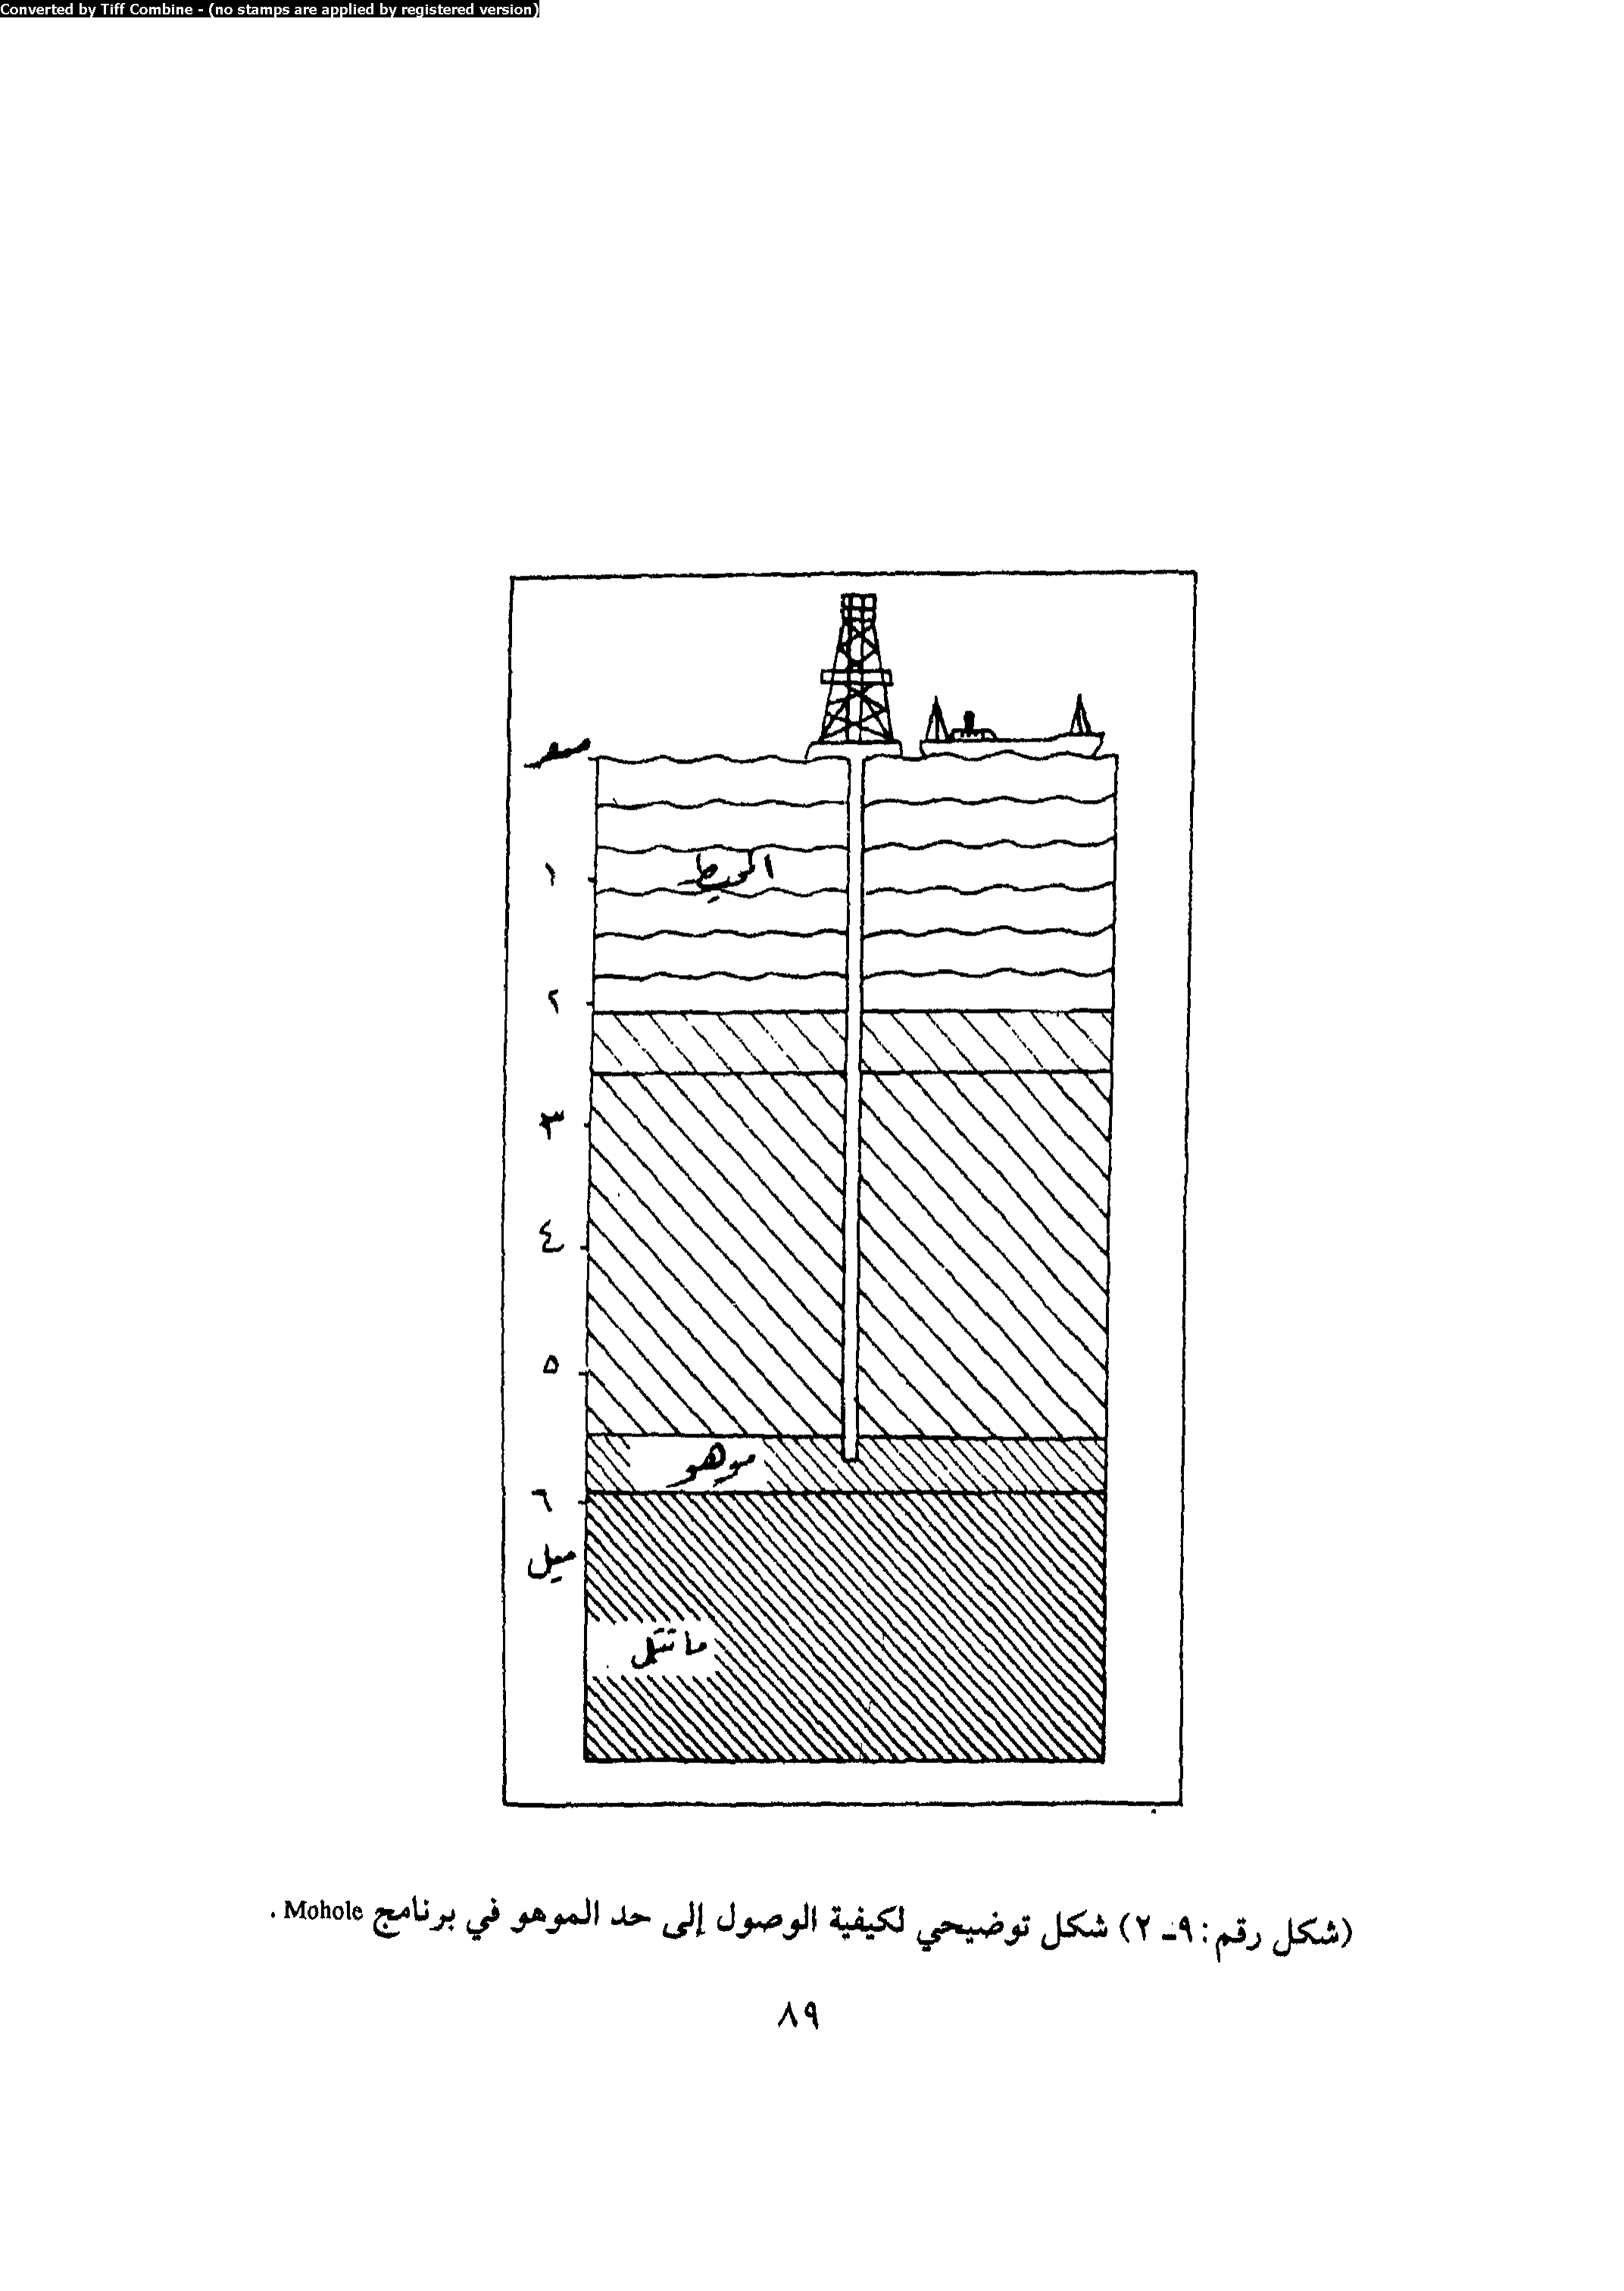 Converted by Tiff Combine - (no stamps are applied by registered version)
صفر
١
المحيط
٢
٣
٤
٥
موهو
٦
ميل
مانتل
(شكل رقم: ٩ـ ٢) شكل توضيحي لكيفية الوصول إلى حد الموهو في برنامج Mohole .
٨٩